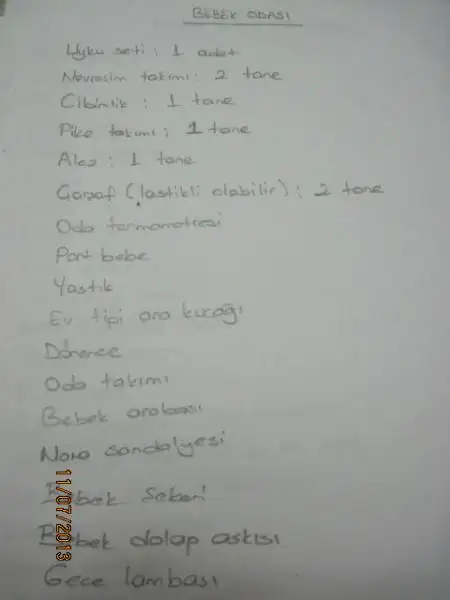 BEBEK ODASI
Uyku seti : 1 adet
Nevresim takımı : 2 tane
Cibinlik : 1 tane
Pike takımı : 1 tane
Alez : 1 tane
Çarşaf (lastikli olabilir) : 2 tane
Oda termometresi
Port bebe
Yastık
Ev tipi ana kucağı
Dönence
Oda takımı
Bebek arabası
Mama sandalyesi
Bebek Şekeri
Bebek dolap askısı
Gece lambası
11/07/2013